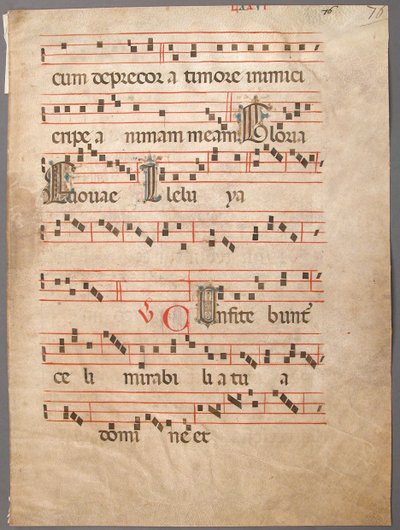 LXXVI 76 76
cum deprecor a timore inimici
eripe a nimam meam Gloria
Euouae Llelu ya
V COnfite bunt̃
ce li mirabi li a tu a
domi ne et